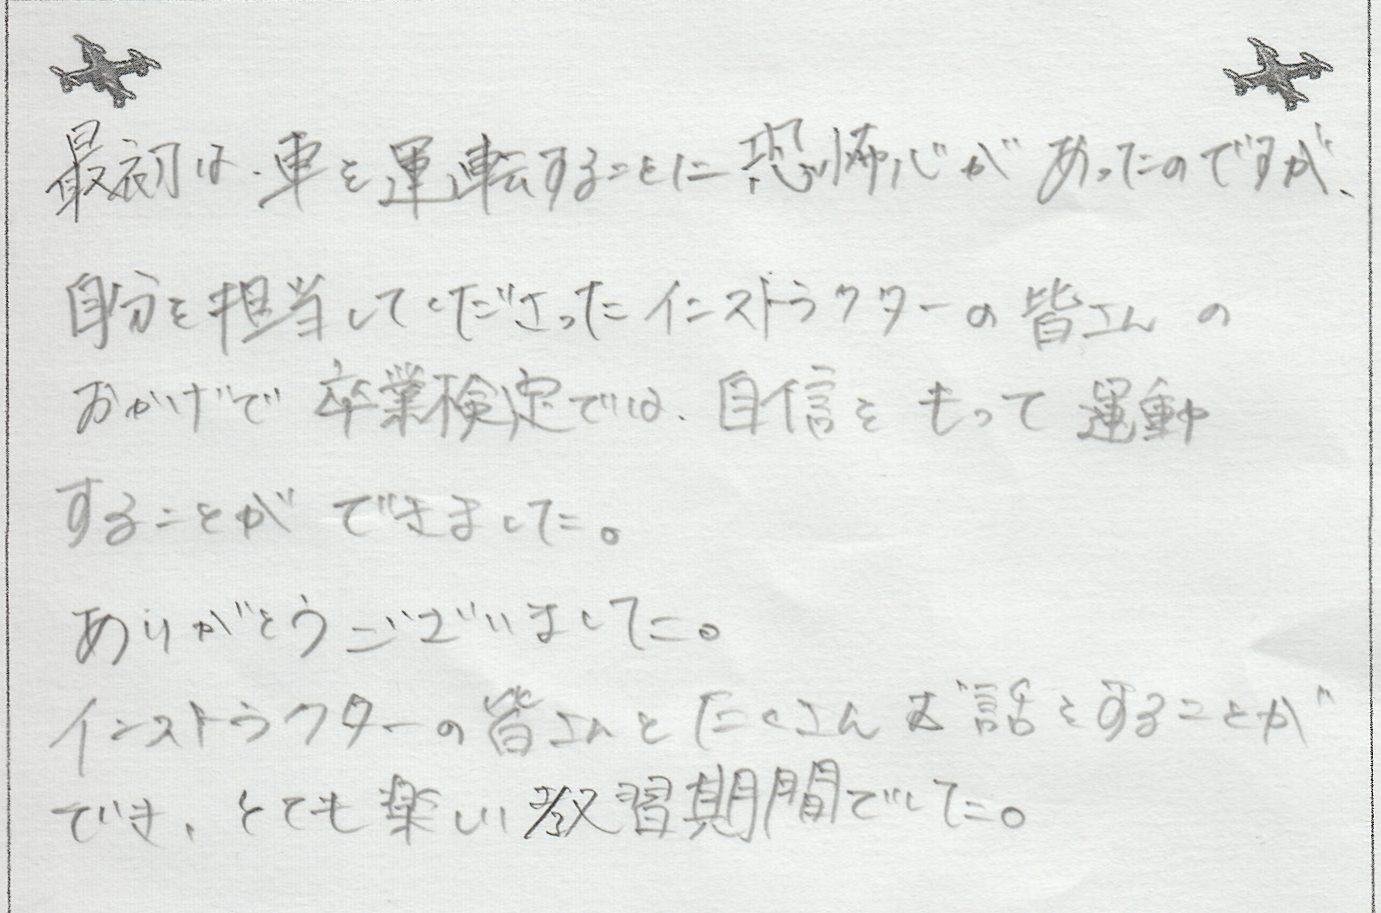 最初は、車を運転することに恐怖心があったのですが、
自分を担当してくださったインストラクターの皆さんの
おかげで卒業検定では、自信をもって運動
することができました。
ありがとうございました。
インストラクターの皆さんとたくさんお話をすることが
でき、とても楽しい教習期間でした。